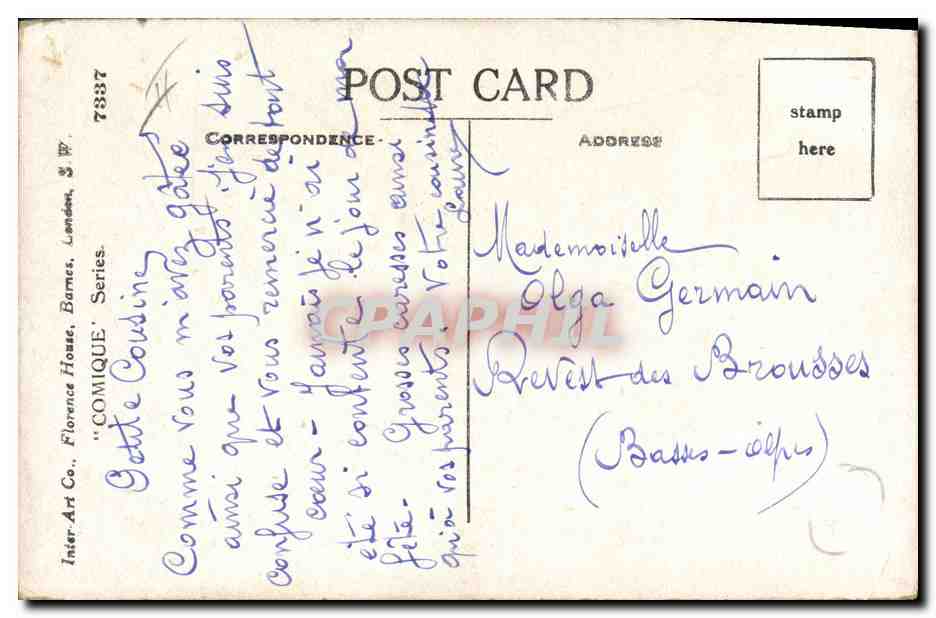 POST CARD
CORRESPONDENCE.
ADDRESS
stamp
here
Inter-Art Co., Florence House, Barnes, London, S.W.
"COMIQUE" Series.
7337
Petite Cousine
Comme vous m'avez gâtée
ainsi que vos parents. J'en suis
confuse et vous remercie de tout
cœur - Jamais je n'ai
été si contente le jour de ma
fête. Grosses caresses ainsi
qu'à vos parents. Votre cousinette
Laure
Mademoiselle
Olga Germain
Revest des Brousses
(Basses-Alpes)
CPAPHIL